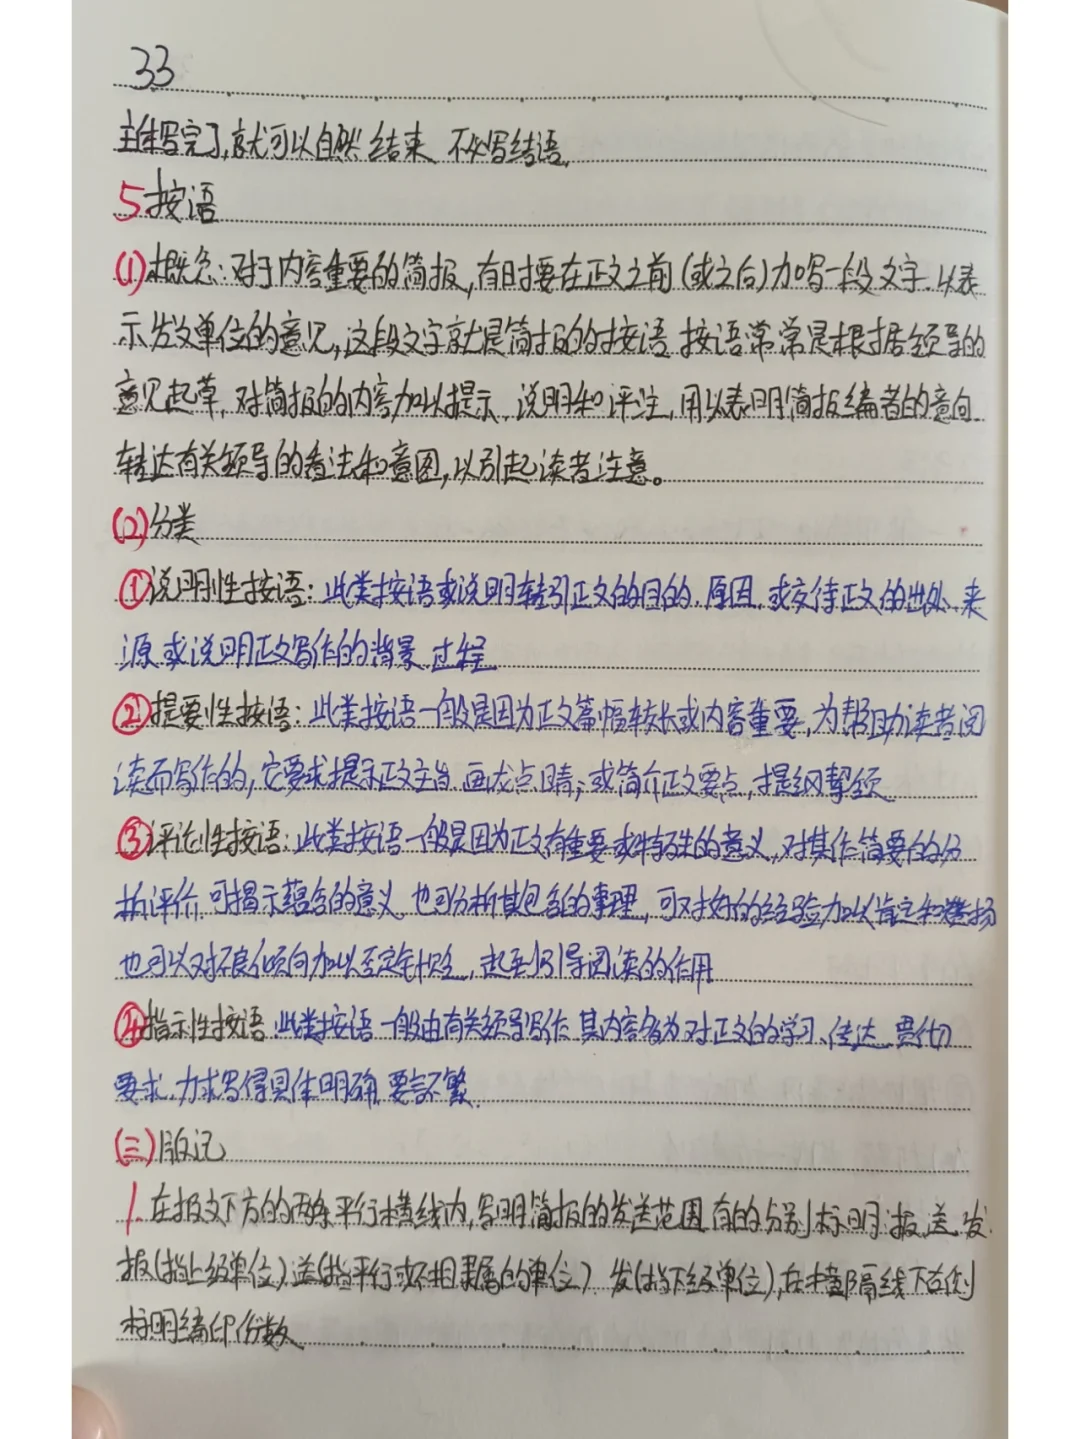 33
主体写完了,就可以自然结束 不必写结语.
5 按语
(1)概念:对于内容重要的简报,有时要在正文之前(或之后)加写一段文字.以表
示发文单位的意见,这段文字就是简报的按语.按语常常是根据领导的
意见起草,对简报的内容加以提示.说明和评注,用以表明简报编者的意向
转达有关领导的看法和意图,以引起读者注意。
(2)分类
①说明性按语:此类按语或说明转引正文的目的.原因.或交待正文的出处.来
源或说明正文写作的背景.过程
②提要性按语:此类按语一般是因为正文篇幅较长或内容重要,为帮助读者阅
读而写作的,它要求提示正文主旨.画龙点睛;或简介正文要点,提纲挈领
③评论性按语:此类按语一般是因为正文有重要或特殊的意义,对其作简要的分
析评价.可揭示蕴含的意义 也可分析其包含的事理,可对好的经验加以肯定和 扬
也可以对不良倾向加以否定针贬,起到引导阅读的作用
④指示性按语.此类按语一般由有关领导写作.其内容多为对正文的学习、传达.贯彻
要求.力求写得具体明确.要言不繁.
(三)版记
1.在报文下方的两条平行横线内,写明简报的发送范围.有的分别标明:报.送.发.
报(指上级单位).送(指平行或不相隶属的单位) 发(指下级单位),在横隔线下右侧
标明编印份数